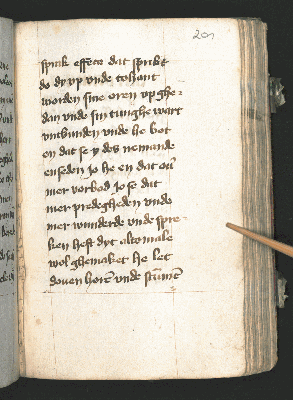 201
sprak effeta dat sprikt
do dy up vnde tohant
worden sine oren upghe-
dan vnde sin tunghe wart
vntbunden vnde he bot
en dat se y des nemande
en seden Jo he en dat ou̅
mer vorbod Jo se dat
mer predegheden vnde
mer wunderde vnde spre-
ken heft dyt altomale
wol ghemaket he let
doven hore̅ vnde stu̅me̅